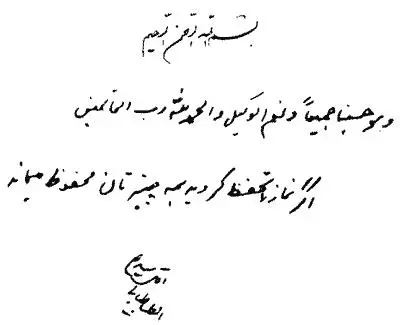 بسم الله الرحمن الرحیم
و هو حسبنا جمیعاً و نعم الوکیل و الحمد لله رب العالمین
اگر نماز را تحفظ کردید همه چیزتان محفوظ میماند
الطباطبایی